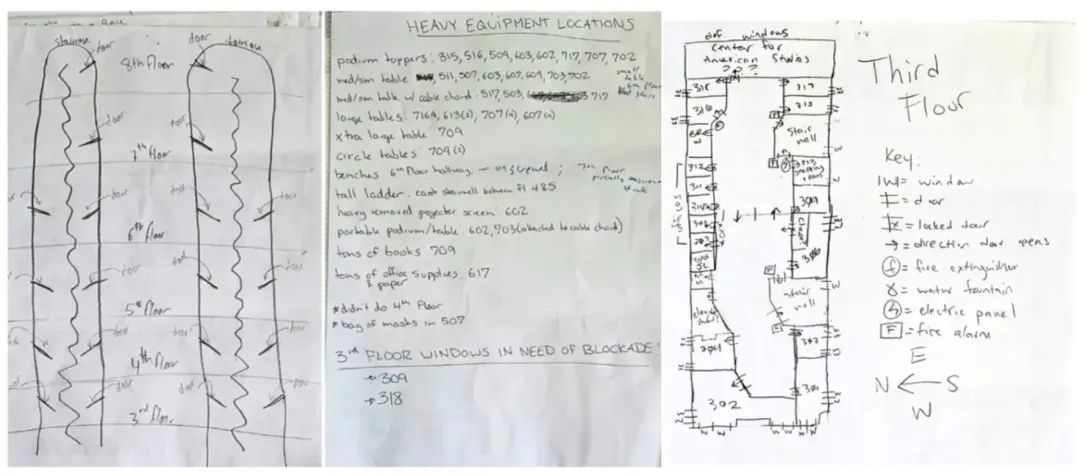 staircase
door
door
staircase
8th floor
door
door
7th floor
door
door
door
6th floor
door
door
door
5th floor
door
door
door
4th floor
door
door
door
3rd floor
HEAVY EQUIPMENT LOCATIONS
podium toppers: 315, 516, 509, 603, 602, 717, 707, 702
med/sm table 511, 507, 603, 607, 609, 703, 702
med/sm table w/ cable chord: 517, 503, 717
large tables: 716A, 613(2), 707(4), 607(4)
xtra large table: 709
circle tables: 709(2)
benches 6th Floor hallway - unscrewed; 7th floor
tall ladder: east stairwell between Fl 4&5
heavy removed projector screen: 602
portable podium/table: 602, 703 (attached to cable chord)
tons of books 709
tons of office supplies 617
& paper
*didn't do 4th Floor
*bag of masks in 507
3rd FLOOR WINDOWS IN NEED OF BLOCKADE:
→309
→318
windows
Center for
American Studies
???
318
317
316
315
Stair
well
312
313
311
309
offices
closet
stair
well
303
304
301
302
Third
Floor
Key:
|W| = window
= door
= locked door
→ = direction door opens
f = fire extinguisher
= water fountain
= electric panel
F = fire alarm
E
N ← S
W